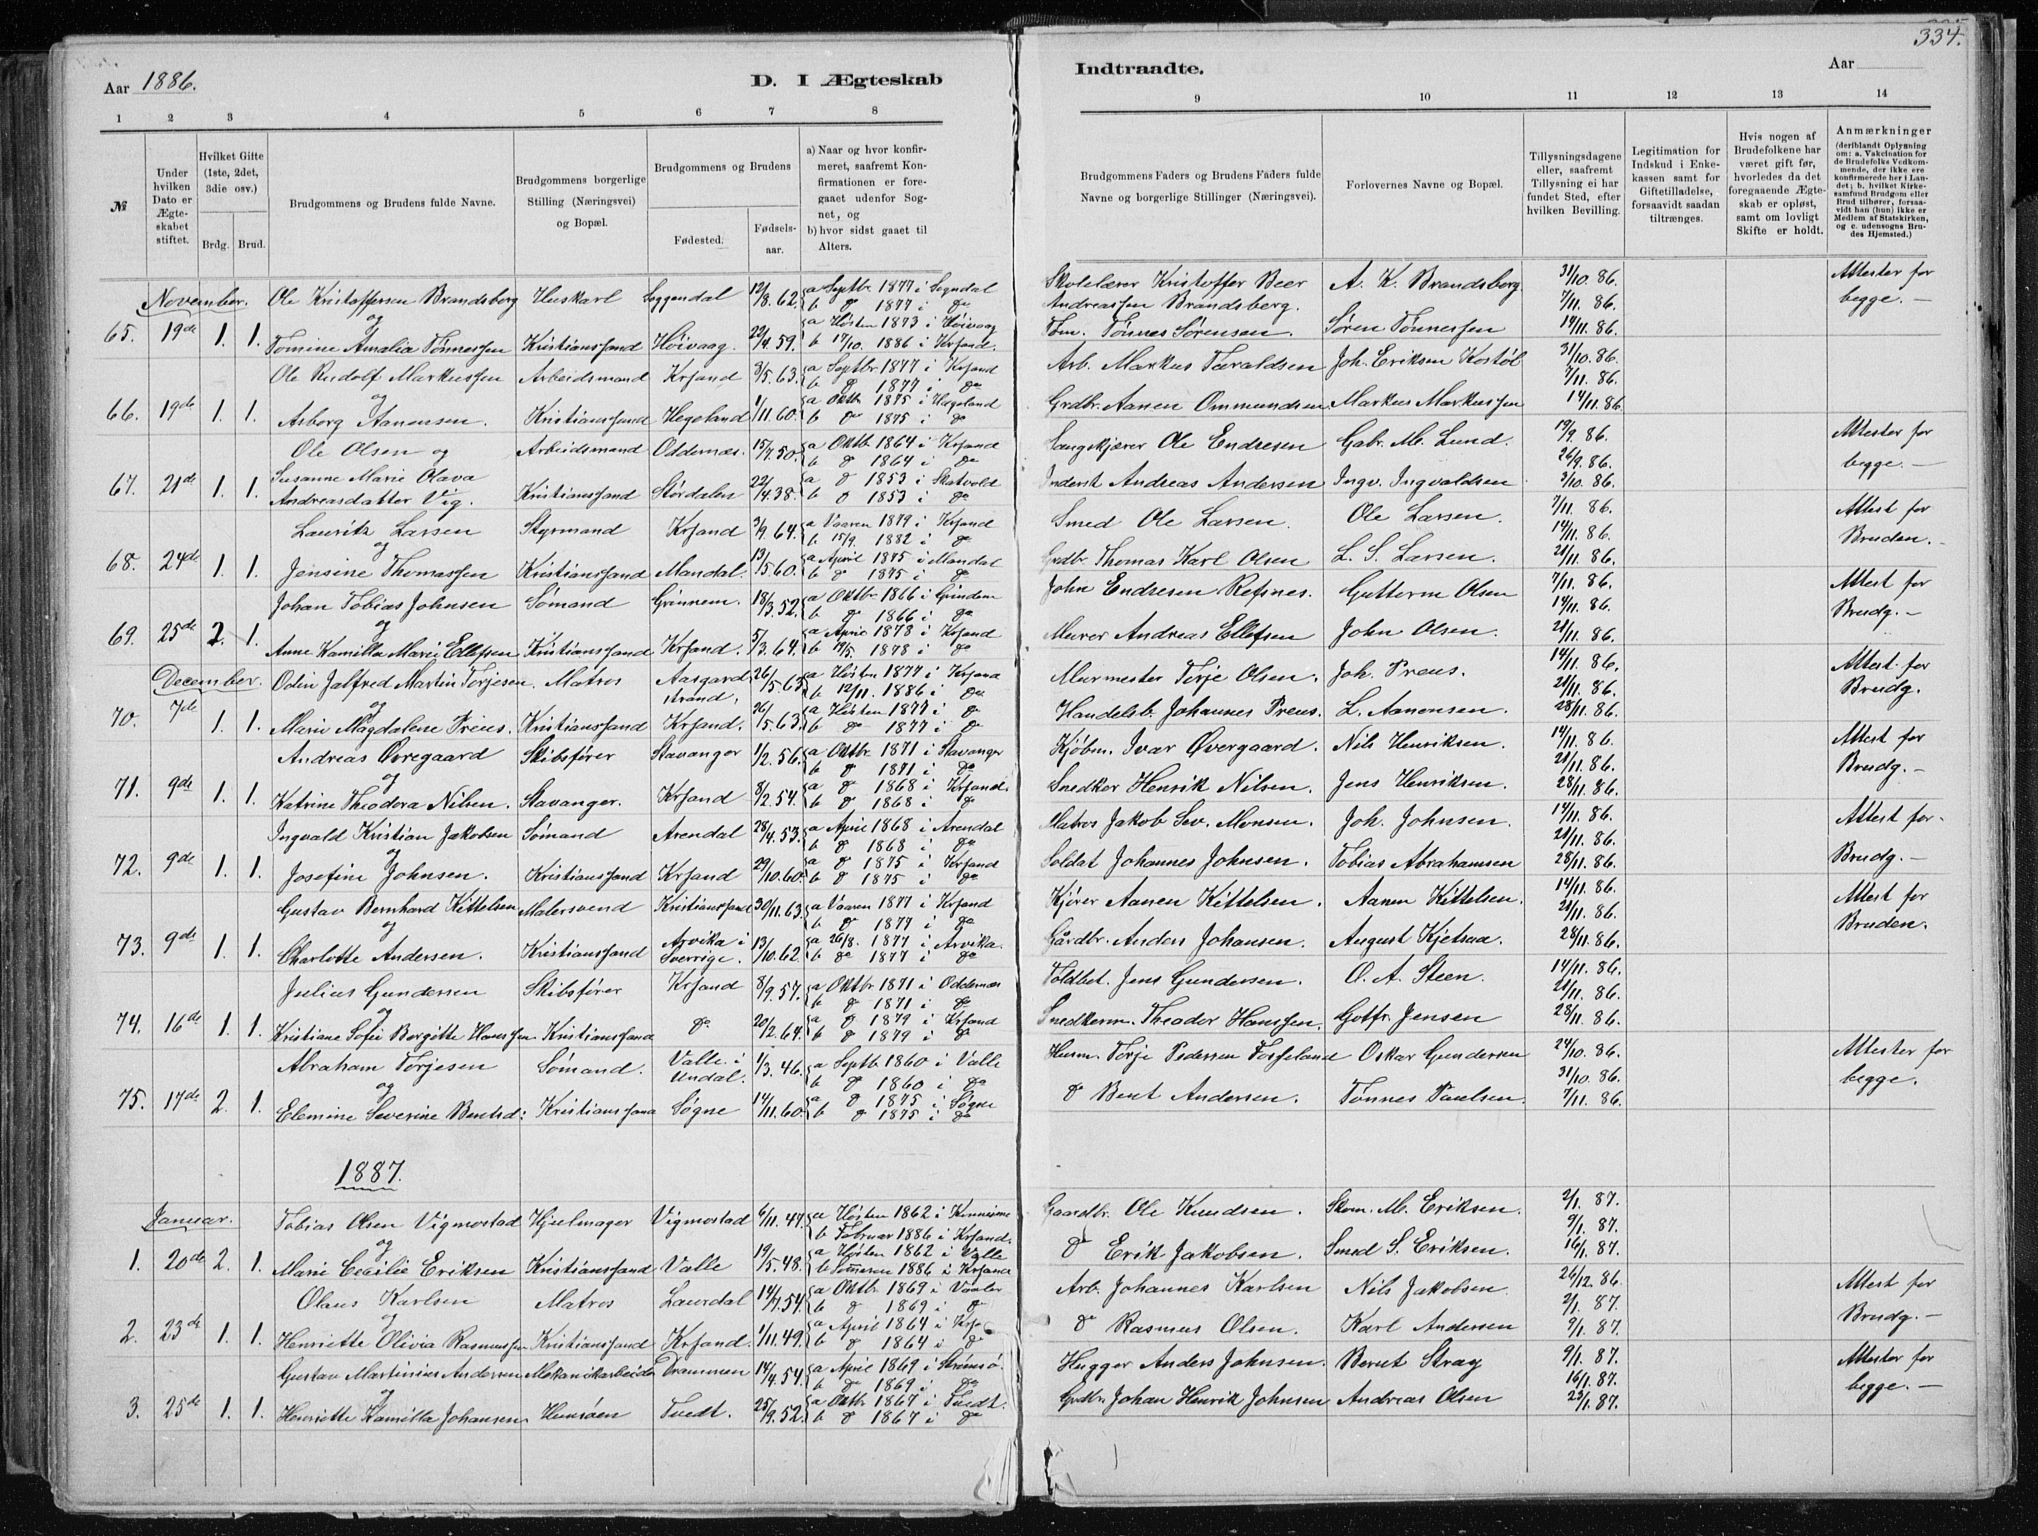 334.
Aar 1886.
D. I Ægteskab
Indtraadte.
Aar
1 2 3 4 5 6 7 8
9 10 11 12 13 14
№
Under hvilken Dato er Ægteskabet stiftet.
Hvilket Gifte (1ste, 2det, 3die osv.)
Brdg. Brud.
Brudgommens og Brudens fulde Navne.
Brudgommens borgerlige Stilling (Næringsvei) og Bopæl.
Brudgommens og Brudens
Fødested. Fødselsaar.
a) Naar og hvor konfirmeret, saafremt Konfirmationen er foregaaet udenfor Sognet, og
b) hvor sidst gaaet til Alters.
Brudgommens Faders og Brudens Faders fulde Navne og borgerlige Stillinger (Næringsvei).
Forlovernes Navne og Bopæl.
Tillysningsdagene eller, saafremt Tillysning ei har fundet Sted, efter hvilken Bevilling.
Legitimation for Indskud i Enkekassen samt for Giftetilladelse, forsaavidt saadan tiltrænges.
Hvis nogen af Brudefolkene har været gift før, hvorledes da det foregaaende Ægteskab er opløst, samt om lovligt Skifte er holdt.
Anmærkninger (deriblandt Oplysning om: a. Vakcination for de Brudefolks Vedkommende, der ikke ere konfirmerede her i Landet; b. hvilket Kirkesamfund Brudgom eller Brud tilhører, forsaavidt han (hun) ikke er Medlem af Statskirken, og c. udensogns Brudes Hjemsted.)
November. Ole Kristoffersen Brandsberg Huskarl Soggendal 12/8. 62. a Septbr 1877 i Sogndal b do 1877 i do Skolelærer Kristoffer Beer Andreassen Brandsberg. A. K. Brandsberg. 31/10. 86. 7/11. 86. Attester for begge. —
65. 19de 1. 1. og Tomine Amalia Tønnessen Kristianssand Høivaag. 22/4. 59. a Høsten 1873 i Høivaag b 17/10. 1886 i Krsand. Tøm. Tønnes Sørensen. Søren Tønnessen 14/11. 86.
Ole Rudolf Markussen Arbeidsmand Krsand 3/5. 63. a Septbr 1877 i Krsand b do 1877 i do Arb. Markus Taraldsen Joh. Eriksen Kostøl 31/10. 86. 7/11. 86.
66. 19de 1. 1. og Asborg Aanensen. Kristianssand Hegeland 1/11. 60. a Oktbr 1875 i Hægeland b do 1875 i do Grdbr. Aanen Ommundsen. Markus Markussen 14/11. 86.
Ole Olsen og Arbeidsmand Oddernæs. 15/7. 50. a Oktbr 1864 i Krsand b do 1864 i do Langskjærer Ole Endresen Gabr. M. Lund. 19/9. 86. 26/9. 86. Attester for begge. —
67. 21de 1. 1. Susanne Marie Olava Andreasdatter Vig. Kristianssand Størdalen 22/4. 38. a do 1853 i Skatvold b do 1853 i do Inderst Andreas Andersen Ingv. Ingvaldsen 3/10. 86.
Lauritz Larsen Styrmand Krsand 3/9. 64. a Vaaren 1879 i Krsand b 15/9. 1882 i do Smed Ole Larsen. Ole Larsen. 7/11. 86. 14/11. 86. Attest for Bruden. —
68. 24de 1. 1. og Jensine Thomassen Kristianssand Mandal. 13/5. 60. a April 1875 i Mandal b do 1875 i do Grdbr Thomas Karl Olsen L. S. Larsen. 21/11. 86.
Johan Tobias Johnsen Sømand Grinnem. 18/3. 52. a Oktbr 1866 i Grindem b do 1866 i do John Endresen Refsnes. Guttorm Olsen 7/11. 86. 14/11. 86. Attest for Brudg. —
69. 25de 2. 1. og Anne Kamilla Marie Ellefsen Kristianssand Krsand. 5/3. 64. a April 1878 i Krsand b 19/5. 1878 i do Murer Andreas Ellefsen John Olsen. 21/11. 86.
December. Odin Jalfred Martin Torjesen. Matros Aasgardstrand. 26/5. 63. a Høsten 1877 i Krsand b 12/11. 1886 i do Murmester Torje Olsen. Joh. Preus. 14/11. 86. 21/11. 86. Attest for Brudg.
70. 7de 1. 1. og Marie Magdalene Preus. Kristianssand Krsand. 26/5. 63. a Høsten 1877 i do b do 1877 i do Handelsb. Johannes Preus. L. Aanensen. 28/11. 86.
Andreas Øvregaard Skibsfører Stavanger 1/2. 56. a Oktbr 1871 i Stavanger b do 1871 i do Kjøbm. Ivar Øvergaard. Nils Henriksen. 14/11. 86. 21/11. 86. Attest for Brudg. —
71. 9de 1. 1. og Katrine Theodora Nilsen. Stavanger. Krsand 8/2. 54. a do 1868 i Krsand. b do 1868 i do Snedker Henrik Nilsen. Jens Henriksen. 28/11. 86.
Ingvald Kristian Jakobsen Sømand Arendal 28/4. 53. a April 1868 i Arendal b do 1868 i do Matros Jakob Sev. Monsen. Joh. Johnsen. 14/11. 86. 21/11. 86. Attest for Brudg. —
72. 9de 1. 1. og Josefine Johnsen. Kristianssand Krsand 29/10. 60. a do 1875 i Krsand b do 1875 i do Soldat Johannes Johnsen. Tobias Abrahamsen 28/11. 86.
Gustav Bernhard Kittelsen Malersvend Kristianssand 30/11. 63. a Vaaren 1877 i Krsand b do 1877 i do Kjører Aanen Kittelsen. Aanen Kittelsen. 14/11. 86. 21/11. 86. Attest for Bruden.
73. 9de 1. 1. og Charlotte Andersen. Kristianssand Arvika i Sverrige. 13/10. 62. a 26/8. 1877 i Arvika. b do 1877 i do Gårdbr. Anders Johansen. August Kjetsaa. 28/11. 86.
Julius Gundersen Skibsfører Krsand 8/9. 57. a Oktbr 1871 i Oddernæs b do 1871 i do Toldbet. Jens Gundersen. O. A. Steen. 14/11. 86. 21/11. 86.
74. 16de 1. 1. og Kristiane Sofie Bergitte Hanssen. Kristianssand do 20/2. 64. a do 1879 i Krsand b do 1879 i do Snedkerm. Theodor Hanssen. Gotfr. Jensen 28/11. 86.
Abraham Torjesen Sømand. Valle i Undal. 1/3. 46. a Septbr 1860 i Valle b do 1860 i do Husm. Torje Pedersen Fosseland Oskar Gundersen 24/10. 86. 31/10. 86. Attester for begge.
75. 17de 2. 1. og Elemine Severine Bentsd: Kristianssand Søgne 14/11. 60. a do 1875 i Søgne b do 1875 i do do Bent Andersen. Tønnes Paulsen. 7/11. 86.
1887.
Januar. Tobias Olsen Vigmostad Hjulmager Vigmostad 6/11. 47. a Høsten 1862 i b Februar 1886 i Krsand. Gaardbr. Ole Knudsen. Skom. M. Eriksen. 2/1. 87. 9/1. 87.
1. 20de 2. 1. og Marie Cecilie Eriksen Kristianssand Valle 19/5. 48. a Høsten 1862 i Valle b Sommeren 1886 i Krsand do Erik Jakobsen. Smed S. Eriksen. 16/1. 87.
Olaus Karlsen Matros Laurdal 14/7. 54. a Oktbr 1869 i b do 1869 i do Arb. Johannes Karlsen Nils Jakobsen 26/12. 86. 2/1. 87. Attest for Brudg. —
2. 23de 1. 1. og Henriette Olivia Rasmussen Kristianssand Krsand. 1/11. 49. a April 1864 i b do 1864 i do do Rasmus Olsen. Karl Andersen 9/1. 87.
Gustav Martinius Andersen Mekanikarbeider Drammen 14/4. 54. a April 1869 i Strømsø. b do 1869 i do Hugger Anders Johnsen. Bernt Stray 9/1. 87. 16/1. 87. Attester for begge. —
3. 25de 1. 1. og Henriette Kamilla Johansen. Hemsøen Tvedt. 25/9. 52. a Oktbr 1867 i Tvedt. b do 1867 i do Grdbr. Johan Henrik Johnsen Andreas Olsen 23/1. 87.